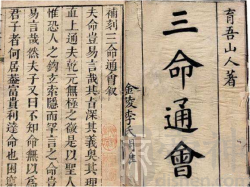 育吾山人著
三命通會
金陵李氏
補刻三命通會叙
夫命豈易言哉其旨深其義奥其理
直上通夫乾元無極之微是以聖人
惟恐人之鈎玄索隱而罕言之命豈
易言哉然夫子又曰不知命無以為
君子者何居蓋富貴利達命也困窮